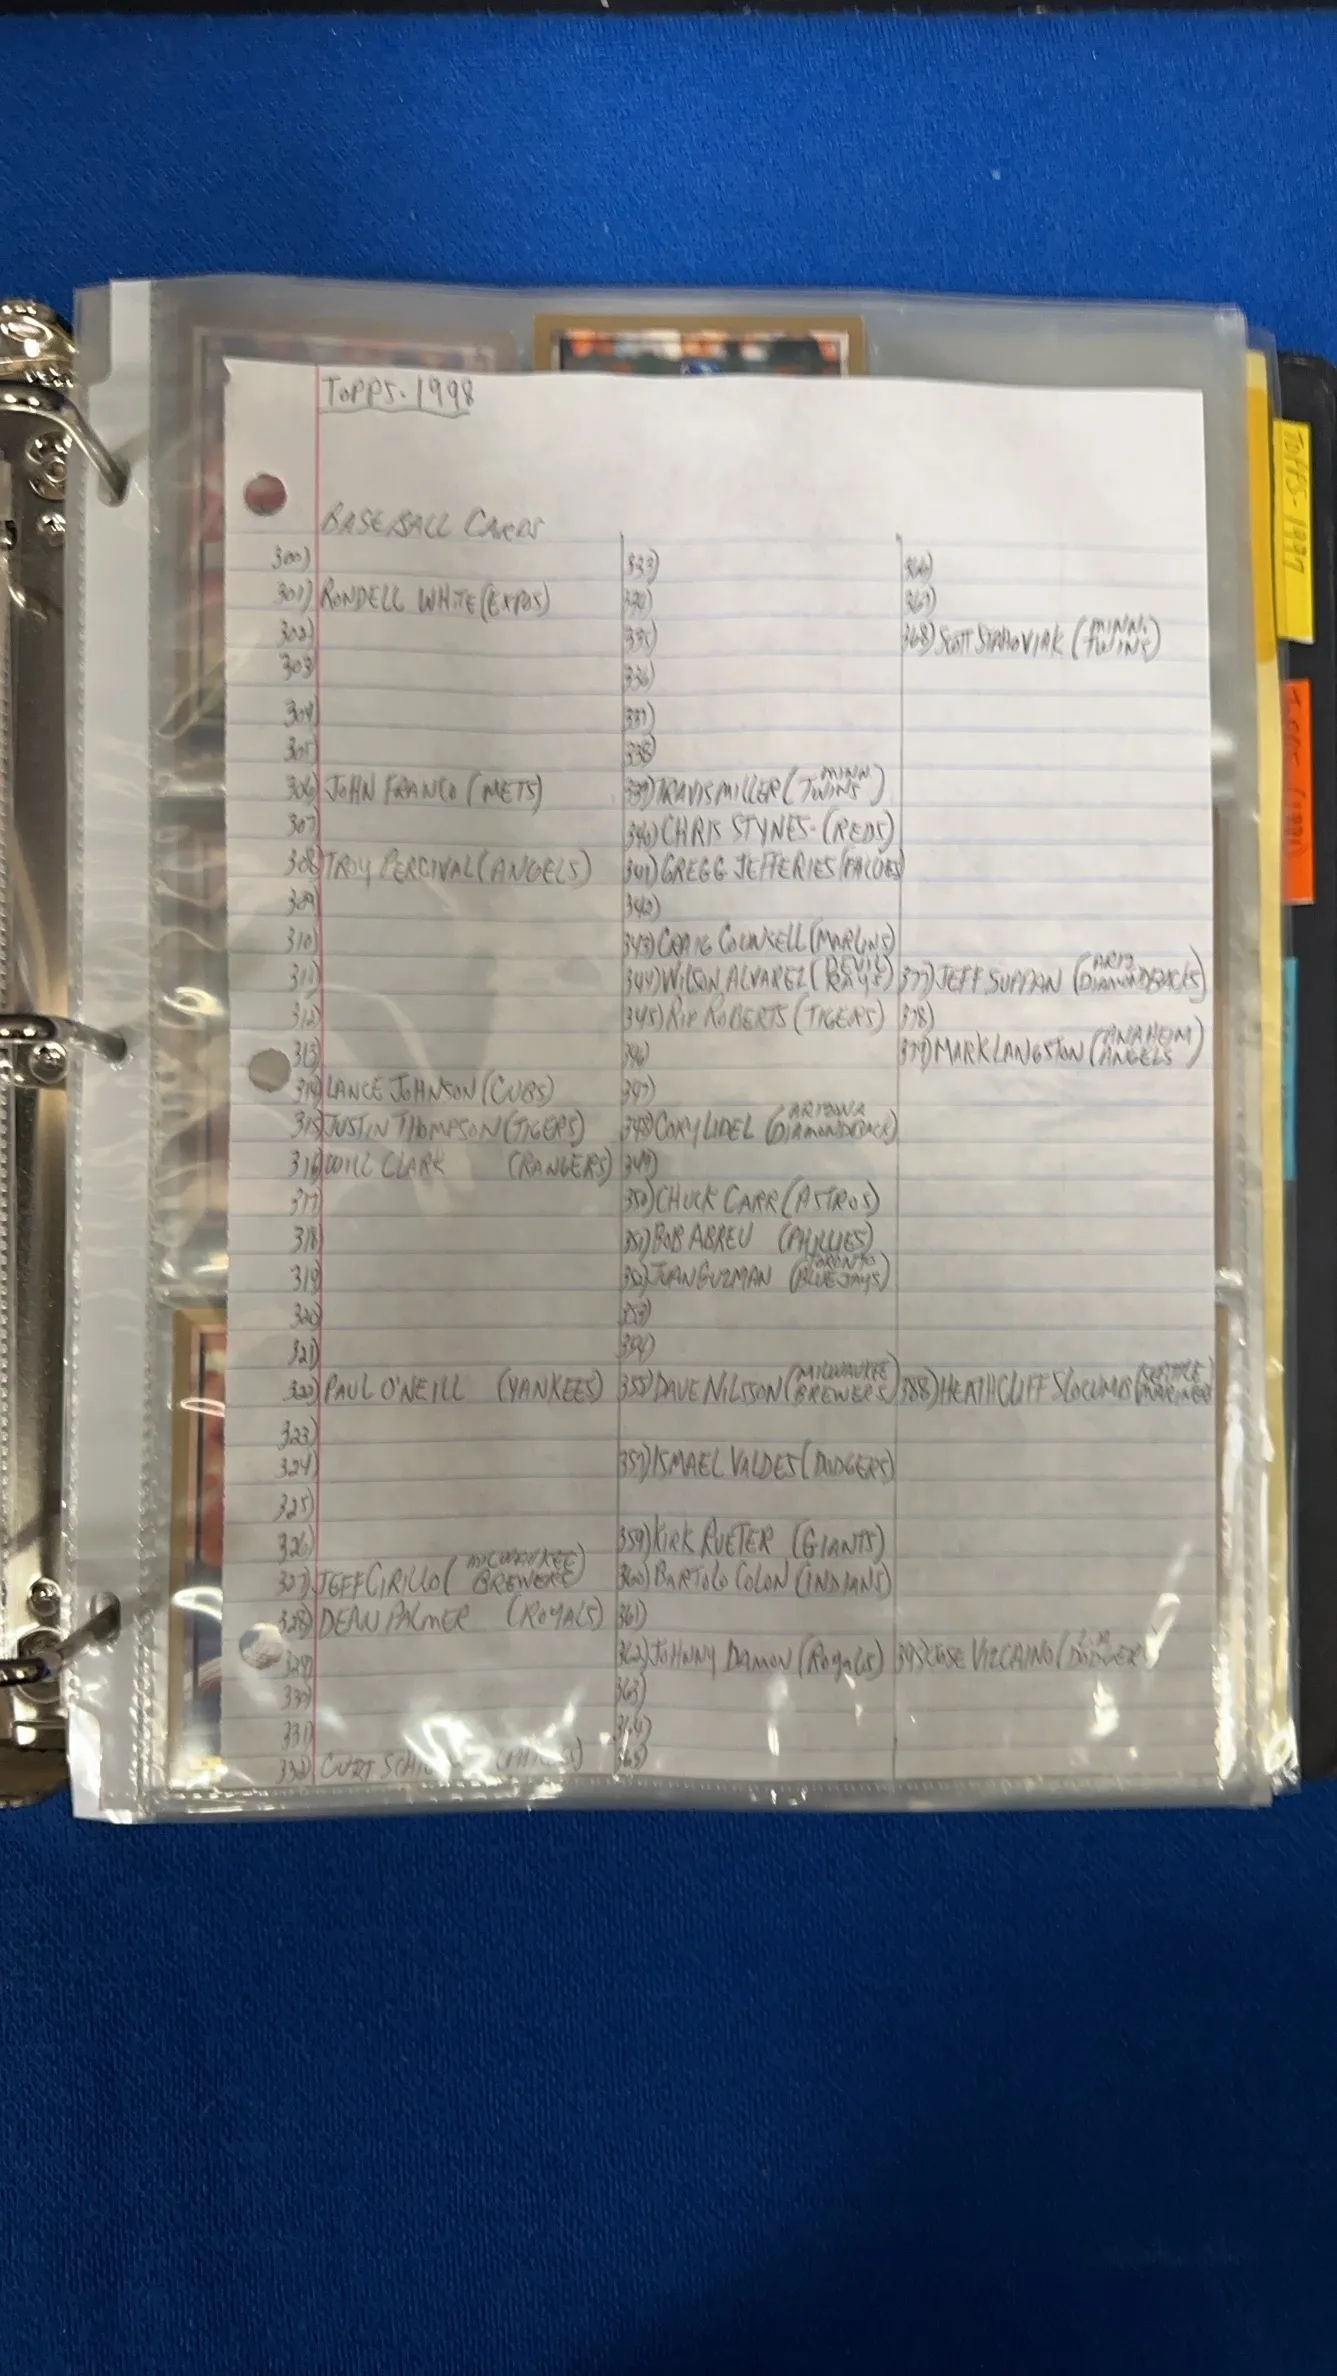 TOPPS. 1998
BASEBALL CARDS
300)
301) RONDELL WHITE (EXPOS)
302)
303
304)
305)
306) JOHN FRANCO (METS)
307)
308) TROY PERCIVAL (ANGELS)
309)
310)
311)
312)
313)
314) LANCE JOHNSON (CUBS)
315) JUSTIN THOMPSON (TIGERS)
316) WILL CLARK (RANGERS)
317)
318)
319)
320)
321)
322) PAUL O'NEILL (YANKEES)
323)
324)
325)
326)
327) JEFF CIRILLO (MILWAUKEE BREWERS)
328) DEAN PALMER (ROYALS)
329)
330)
331)
332) CURT
333)
334)
335)
336)
337)
338)
339) TRAVIS MILLER (MINN. TWINS)
340) CHRIS STYNES. (REDS)
341) GREGG JEFFERIES
342)
343) CRAIG COUNSELL (MARLINS)
344) WILSON ALVAREZ (DEVIL RAYS)
345) RIP ROBERTS (TIGERS)
346)
347)
348) CORY LIDEL (ARIZONA DIAMONDBACK)
349)
350) CHUCK CARR (ASTROS)
351) BOB ABREU (PHILLIES)
352) JUAN GUZMAN (TORONTO BLUE JAYS)
353)
354)
355) DAVE NILSSON (MILWAUKEE BREWERS)
357) ISMAEL VALDES (DODGERS)
359) KIRK RUETER (GIANTS)
360) BARTOLO COLON (INDIANS)
361)
362) JOHNNY DAMON (ROYALS)
363)
364)
365)
366)
367)
368) SCOTT STAHOVIAK (MINN. TWINS)
377) JEFF SUPPAN (ARIZ DIAMONDBACKS)
378)
379) MARK LANGSTON (ANAHEIM ANGELS)
388) HEATHCLIFF SLOCUMB (SEATTLE MARINERS)
395) JOSE VIZCAINO (L.A DODGER
TOPPS-1997